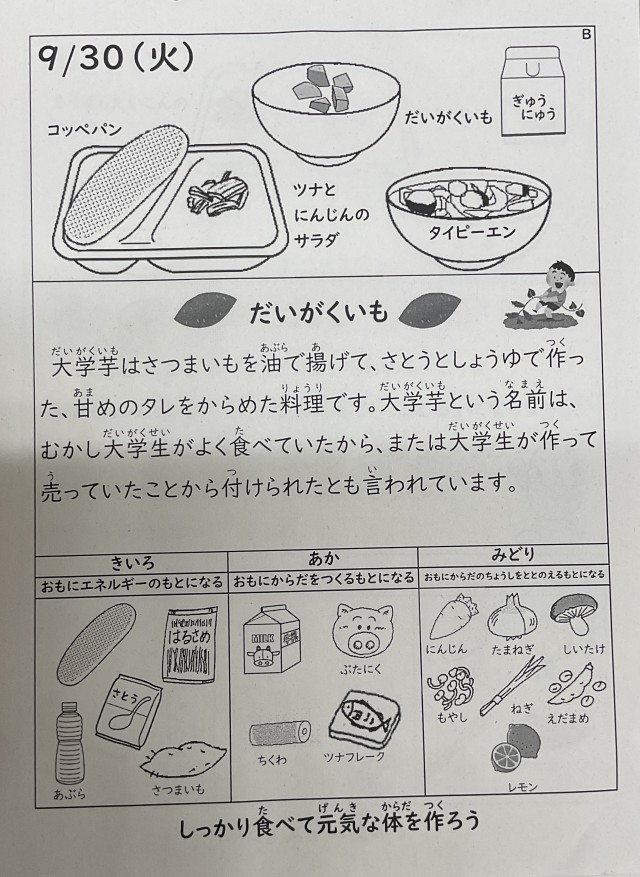 B
9/30(火)
コッペパン
だいがくいも
ぎゅう
にゅう
ツナと
にんじんの
サラダ
タイピーエン
だいがくいも
大学芋はさつまいもを油で揚げて、さとうとしょうゆで作っ
た、甘めのタレをからめた料理です。大学芋という名前は、
むかし大学生がよく食べていたから、または大学生が作って
売っていたことから付けられたとも言われています。
きいろ
あか
みどり
おもにエネルギーのもとになる
おもにからだをつくるもとになる
おもにからだのちょうしをととのえるもとになる
はるさめ
さとう
あぶら
さつまいも
MILK
牛乳
ぶたにく
ちくわ
ツナフレーク
にんじん
たまねぎ
しいたけ
もやし
ねぎ
えだまめ
レモン
しっかり食べて元気な体を作ろう